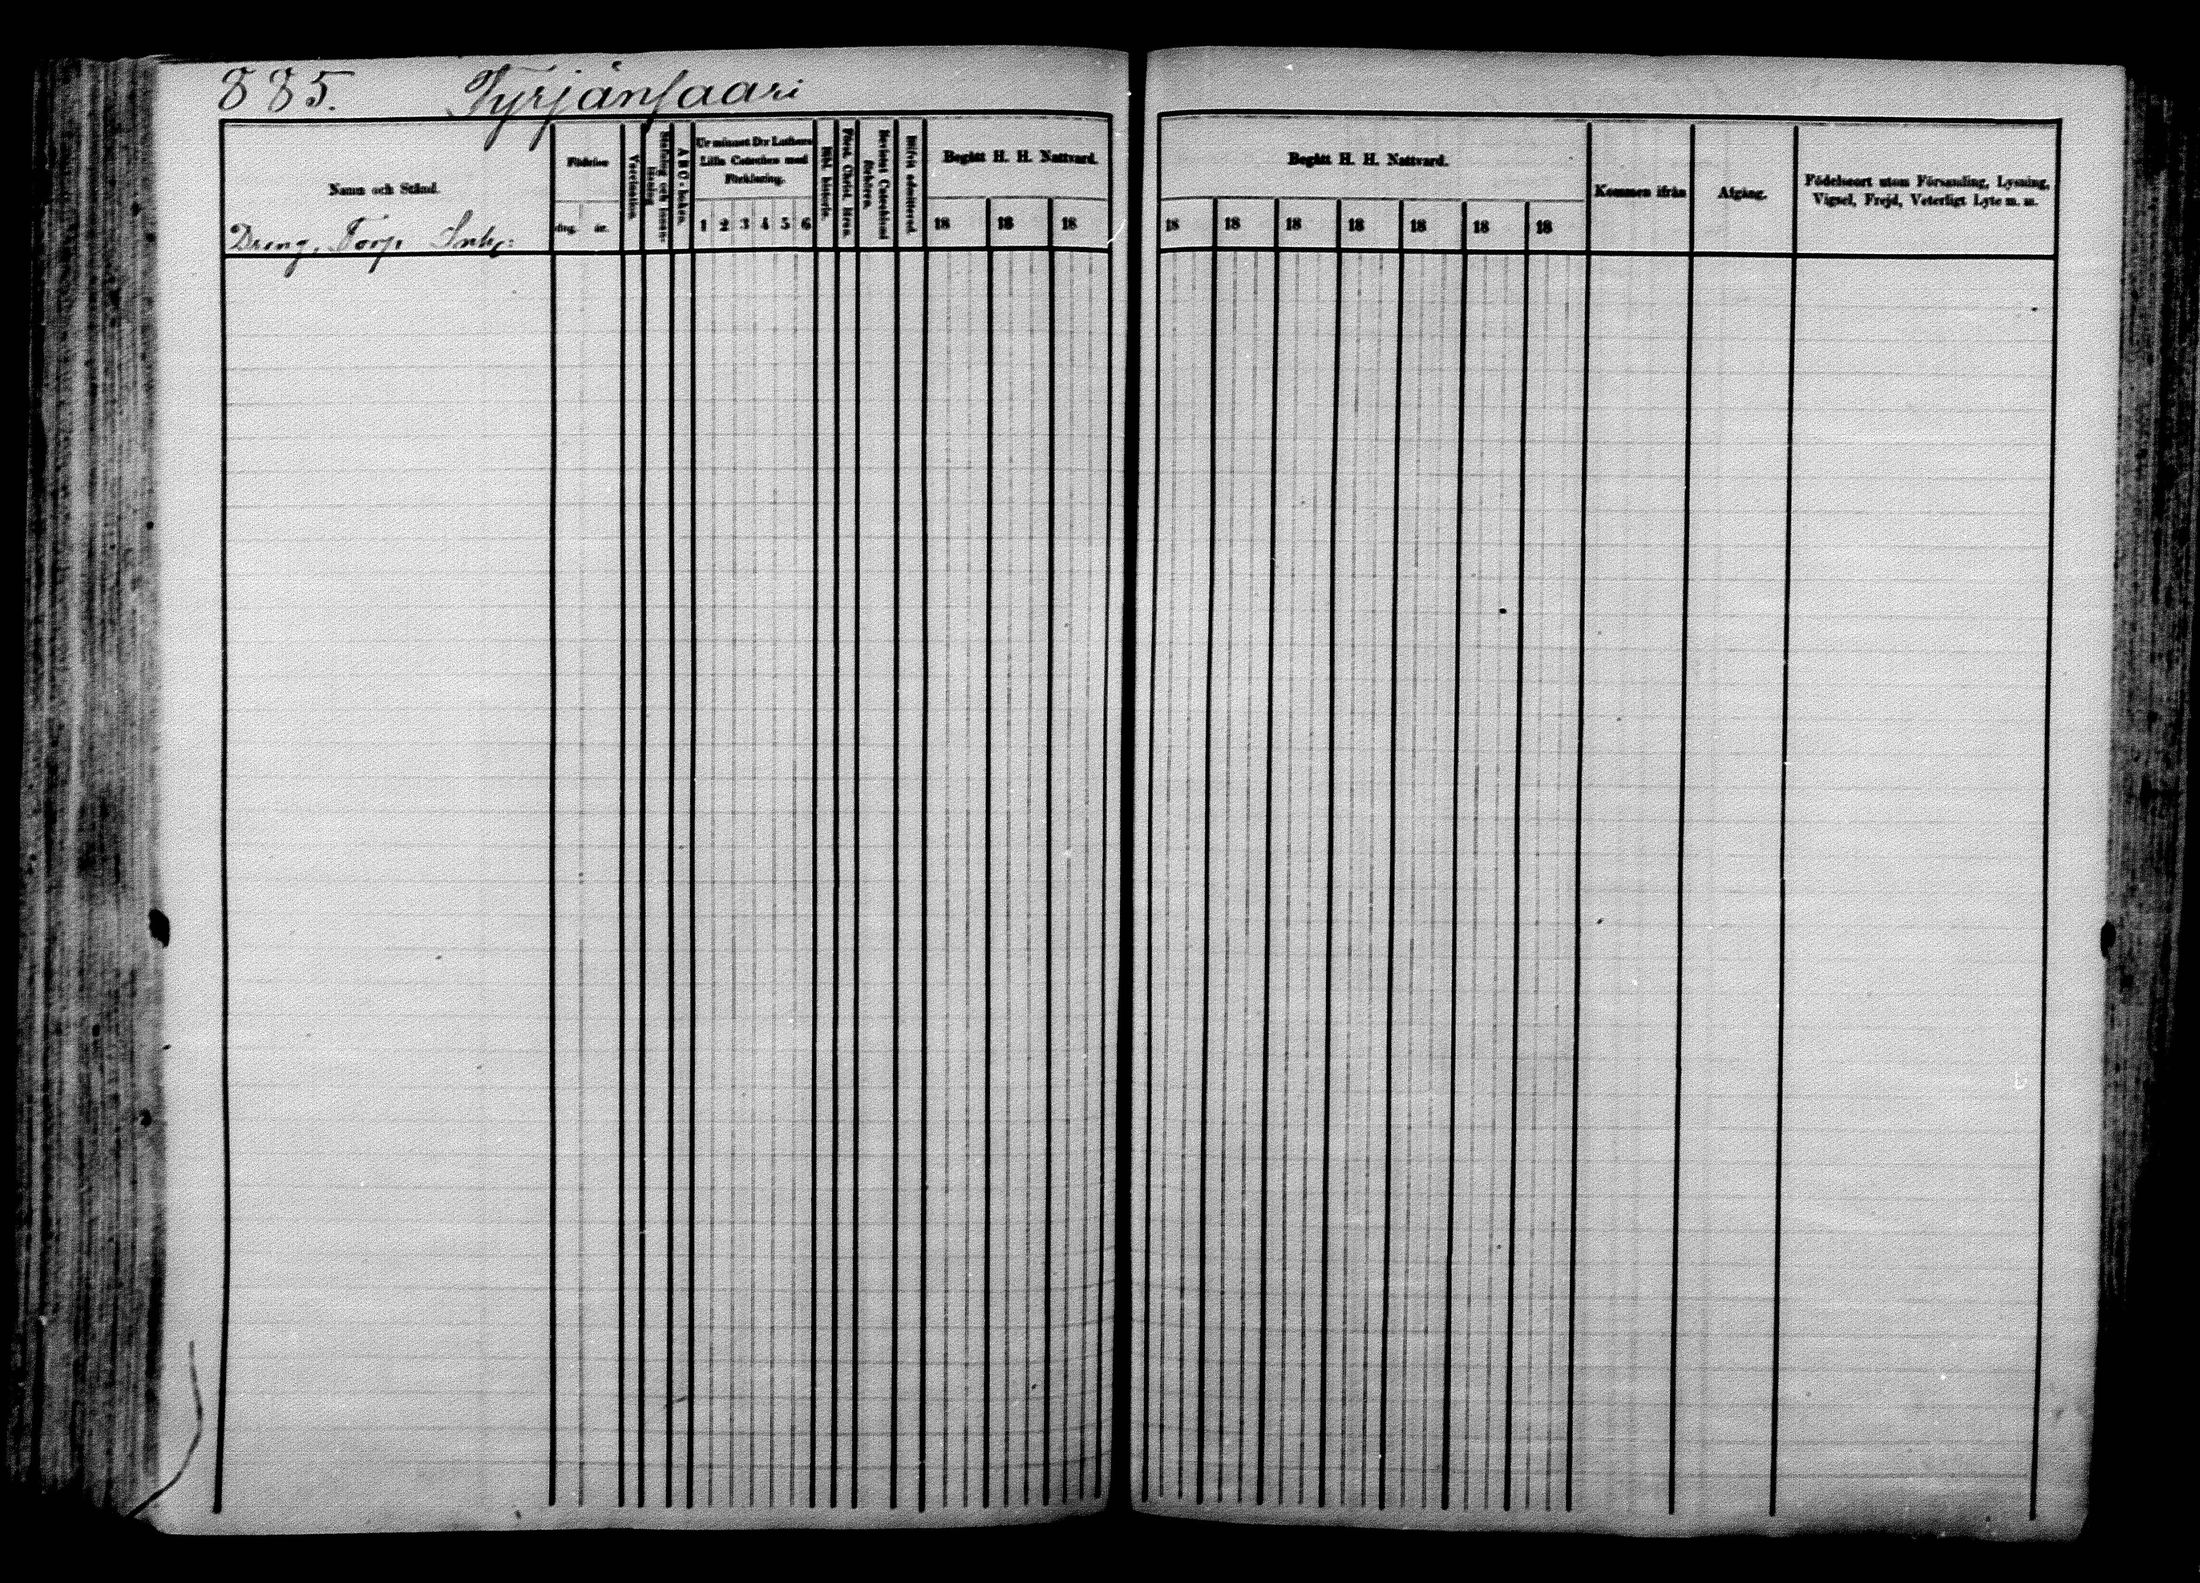 885. Tyrjänsaari
Namn och Stånd.
Dreng, Torp Inhy:
Födelse
dag. år.
Vaccination.
Stafning och innan-
läsning
A B C-boken.
Ur minnet D:r Luthers
Lilla Cateches med
Förklaring.
1 2 3 4 5 6
Bibl. historie.
Först. Christ. lären.
Bevistat Catechismi
förhören.
Blifvit admitterad.
Begått H. H. Nattvard.
18 18 18
Begått H. H. Nattvard.
18 18 18 18 18 18 18
Kommen ifrån
Afgång.
Födelseort utom Församling, Lysning,
Vigsel, Frejd, Veterligt Lyte m. m.